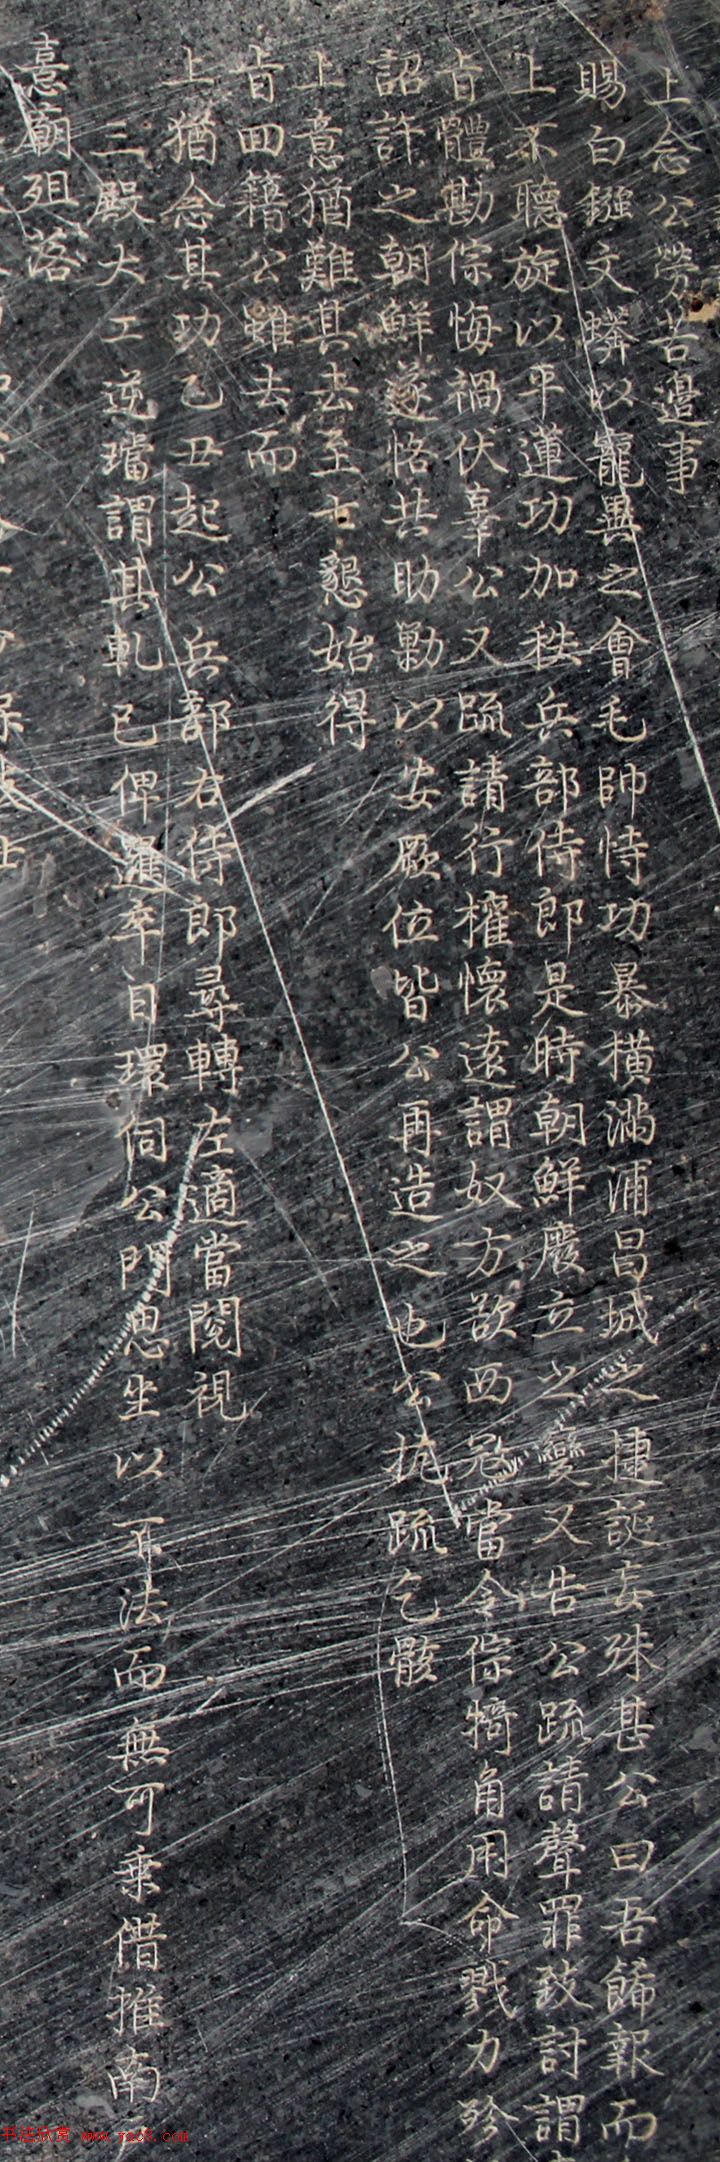 上念公勞苦邊事
賜白鏹文蟒以寵異之會毛帥恃功暴橫滿浦昌城之捷誕妄殊甚公曰吾餙報而
上不聽旋以平蓮功加秩兵部侍郎是時朝鮮廢立之變又告公疏請聲罪致討謂
旨體勘倧悔禍伏辜公又疏請行權懷遠謂奴方欲西寇當令倧犄角用命戮力殄
詔許之朝鮮遂恪共助勦以安厥位皆公再造之也公抗疏乞骸
上意猶難其去至七懇始得
旨回籍公雖去而
上猶念其功乙丑起公兵部右侍郎尋轉左適當閱視
三殿大工逆璫謂其軋己俾邏卒目環伺公門思坐以不法而無可乘借推南
憙廟殂落
书法欣赏 www.yac8.com